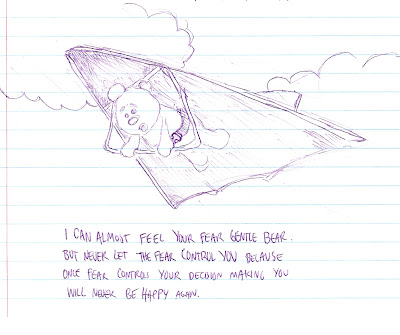 I CAN ALMOST FEEL YOUR FEAR GENTLE BEAR.
BUT NEVER LET THE FEAR CONTROL YOU BECAUSE
ONCE FEAR CONTROLS YOUR DECISION MAKING YOU
WILL NEVER BE HAPPY AGAIN.